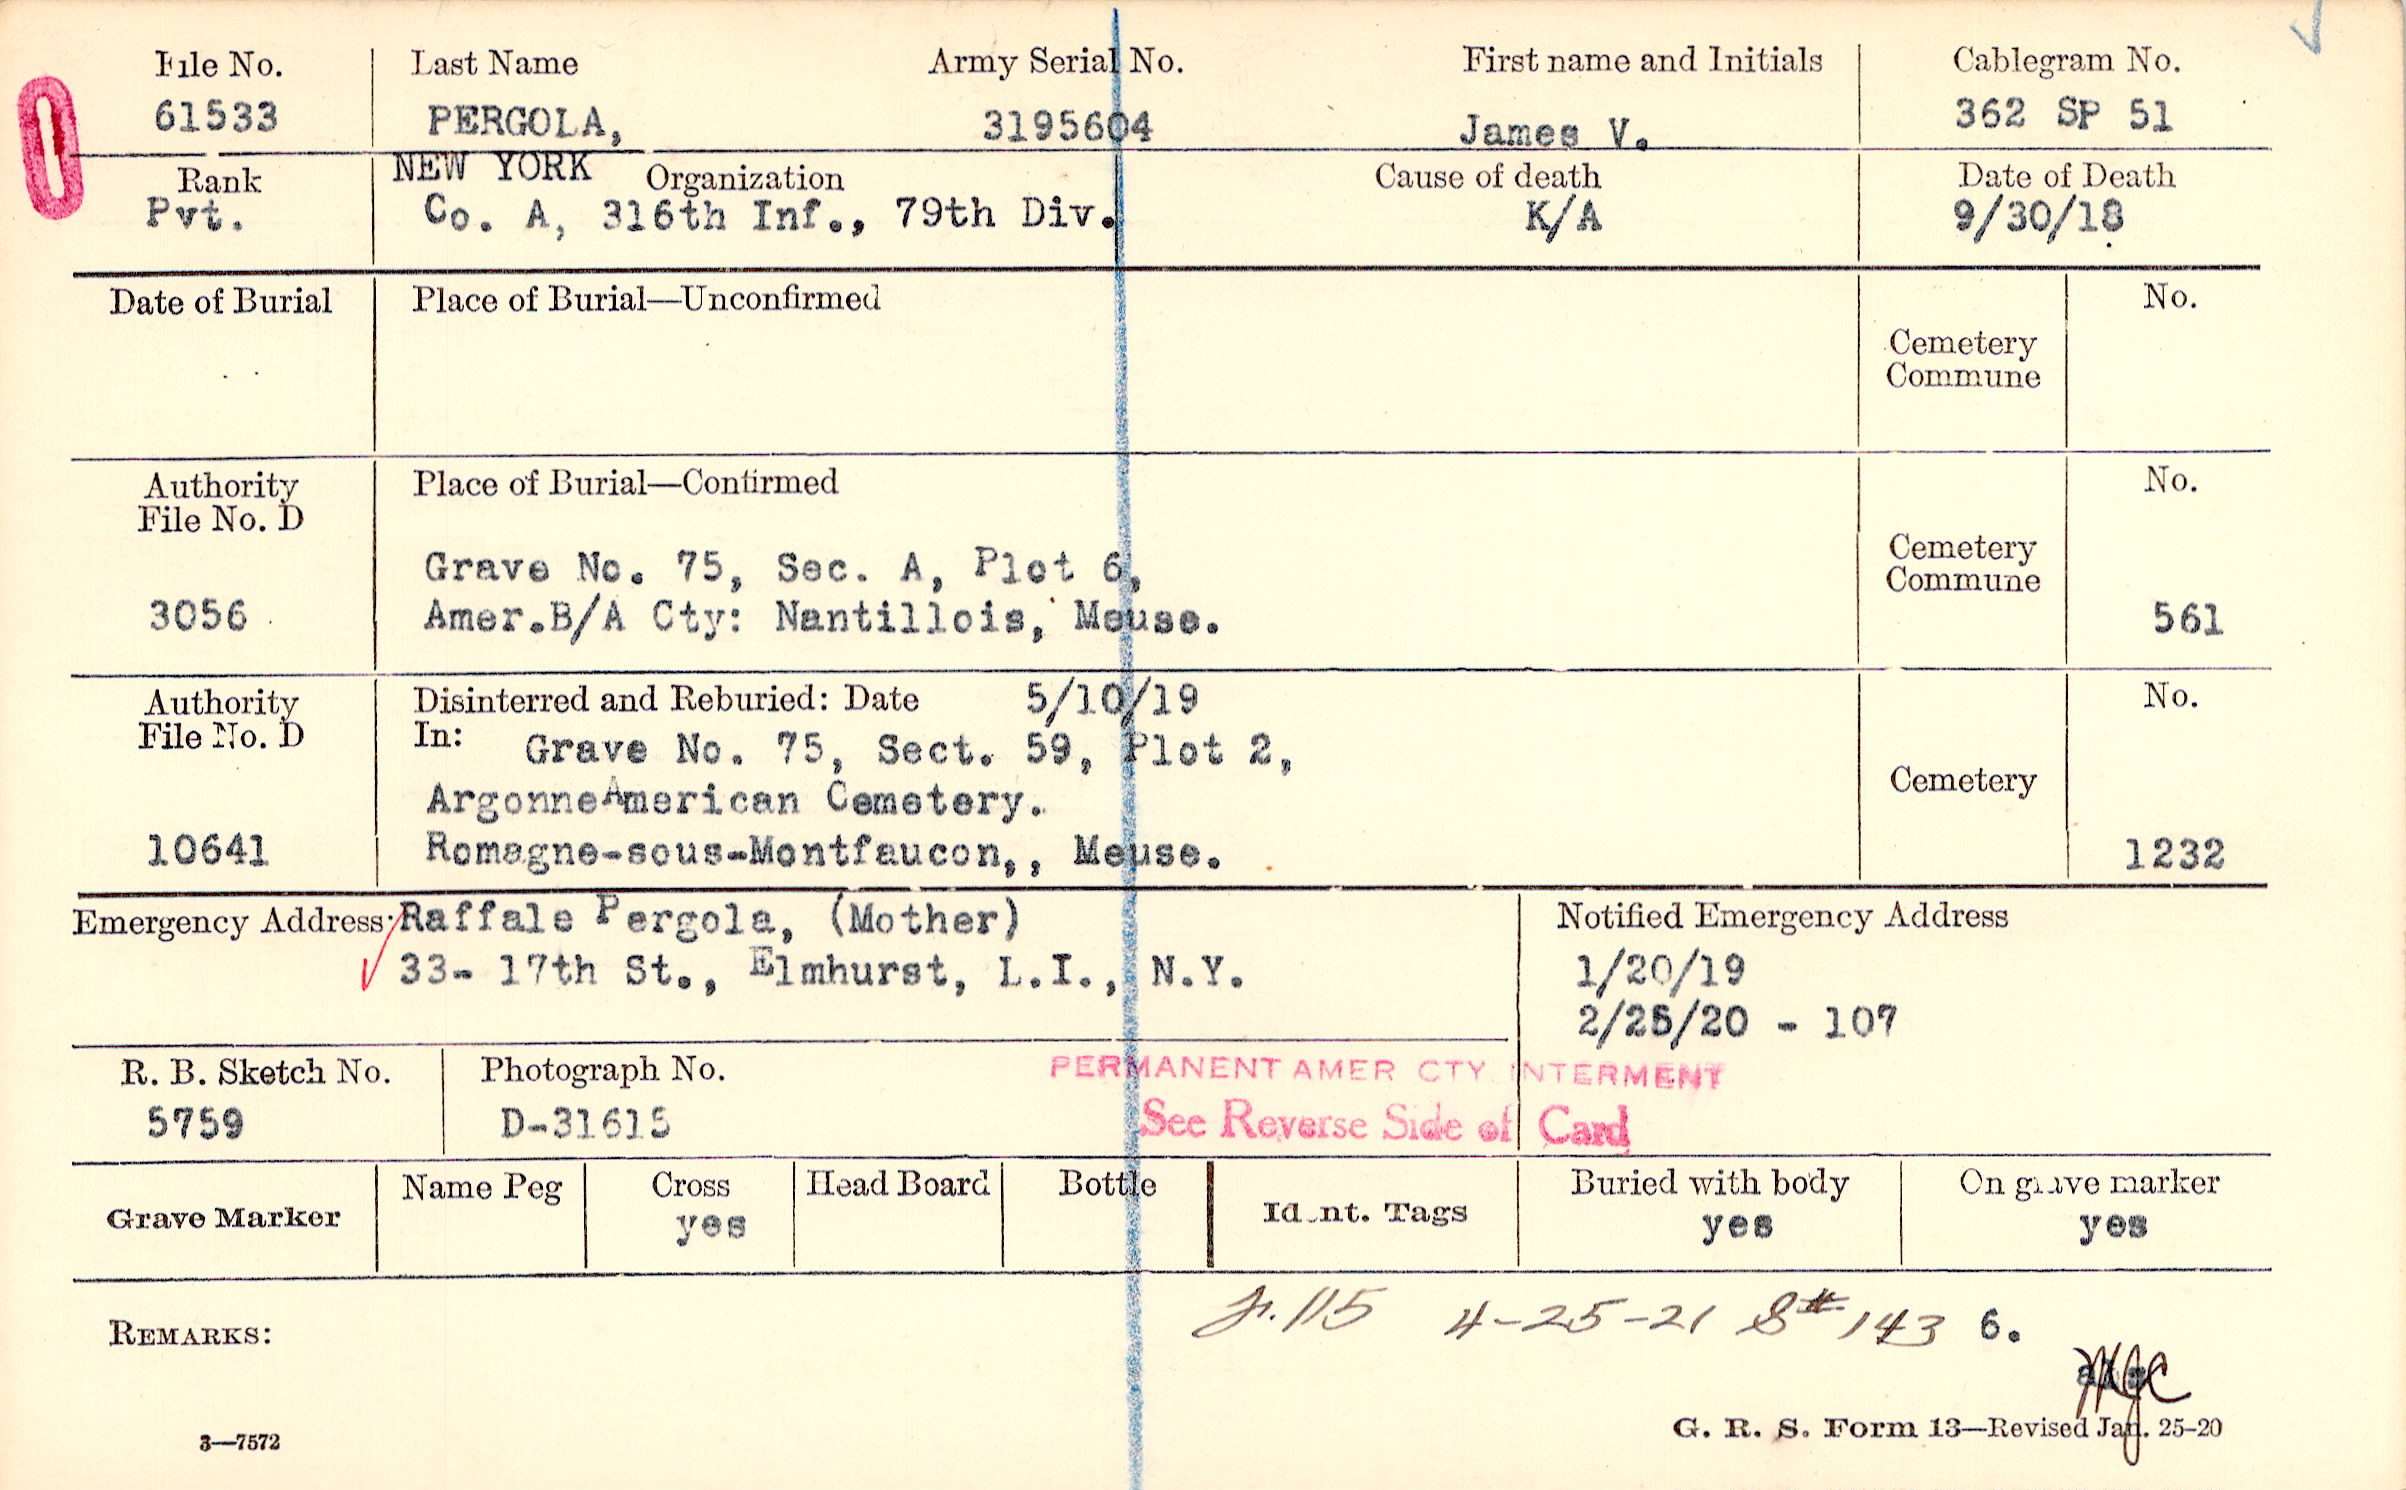 File No. Last Name Army Serial No. First name and Initials Cablegram No.
61533 PERGOLA, 3195604 James V. 362 SP 51
Rank NEW YORK Organization Cause of death Date of Death
Pvt. Co. A, 316th Inf., 79th Div. K/A 9/30/18
Date of Burial Place of Burial—Unconfirmed No.
Cemetery
Commune
Authority Place of Burial—Confirmed No.
File No. D
Grave No. 75, Sec. A, Plot 6, Cemetery
Commune
3056 Amer.B/A Cty: Nantillois, Meuse. 561
Authority Disinterred and Reburied: Date 5/10/19 No.
File No. D In: Grave No. 75, Sect. 59, Plot 2,
Argonne American Cemetery. Cemetery
10641 Romagne-sous-Montfaucon,, Meuse. 1232
Emergency Address: Raffale Pergola, (Mother) Notified Emergency Address
33- 17th St., Elmhurst, L.I., N.Y. 1/20/19
2/25/20 - 107
R. B. Sketch No. Photograph No. PERMANENT AMER CTY INTERMENT
5759 D-31615 See Reverse Side of Card
Grave Marker Name Peg Cross Head Board Bottle Ident. Tags Buried with body On grave marker
yes yes yes
REMARKS: 115 4-25-21 S# 143 6.
3—7572 G. R. S. Form 13—Revised Jan. 25-20